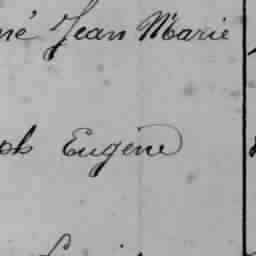 né Jean Marie
ph Eugène